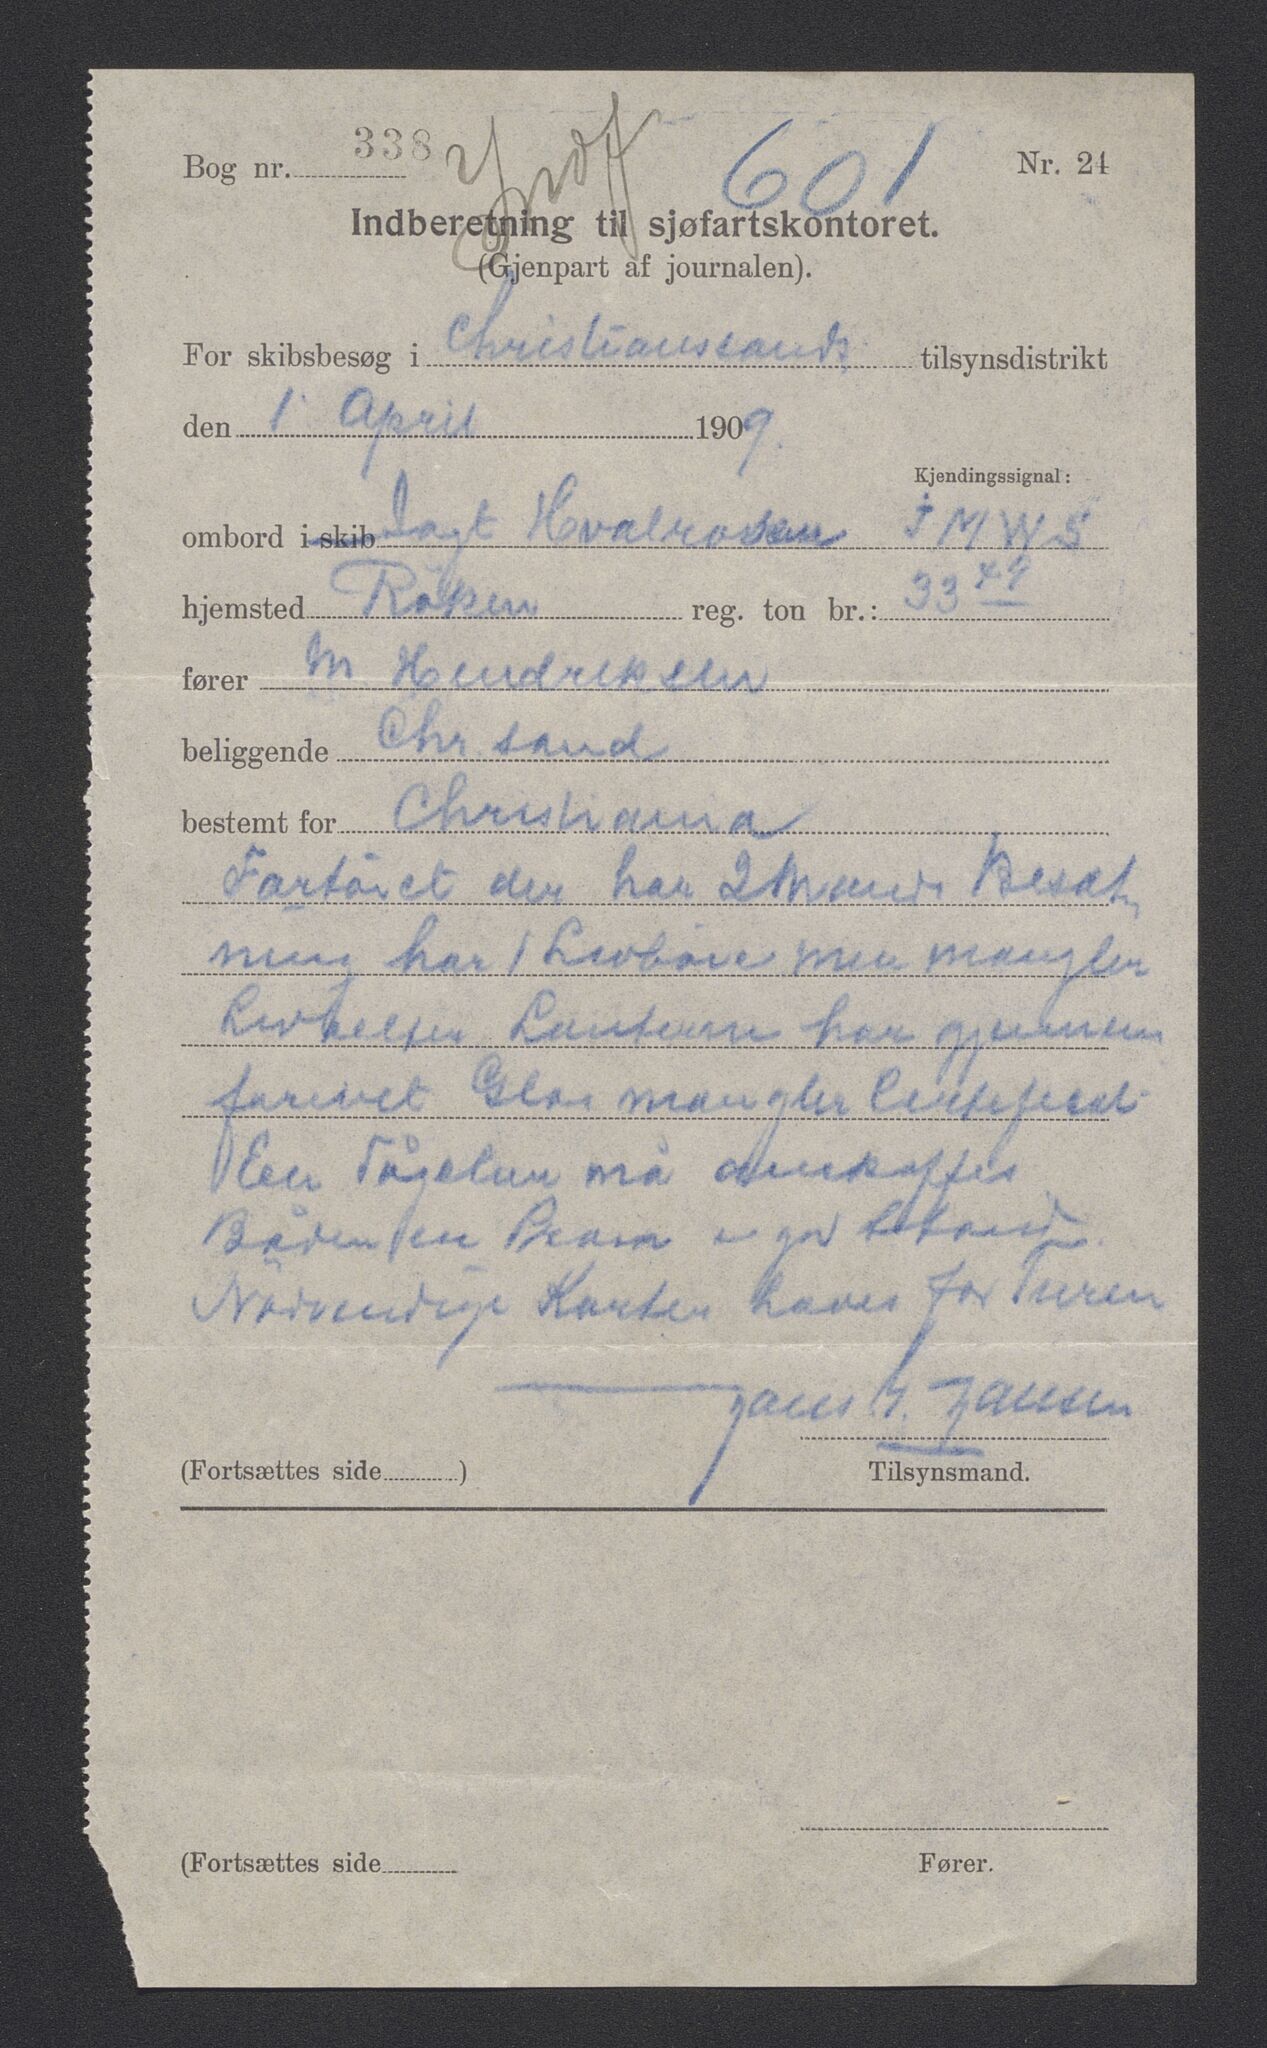 Bog nr. 338 601 Nr. 24
Indberetning til sjøfartskontoret.
(Gjenpart af journalen).
For skibsbesøg i Christianssands tilsynsdistrikt
den 1 April 1909.
Kjendingssignal:
ombord i skib Jagt Hvalrosen J M W S
hjemsted Röken reg. ton br.: 33 49
fører M. Hendriksen
beliggende Chr. sand
bestemt for Christiania
Fartöiet der har 2 Mands Besæt
ning har 1 Livböie men mangler
Livbelter Lanterne har gjennem
farivet Glas mangler Certificat
Een Tågelur må anskaffes
Båden en Pram i god Stand.
Nödvendige Karter haves for Turen
Jans J. Jansen
(Fortsættes side ) Tilsynsmand.
(Fortsættes side Fører.